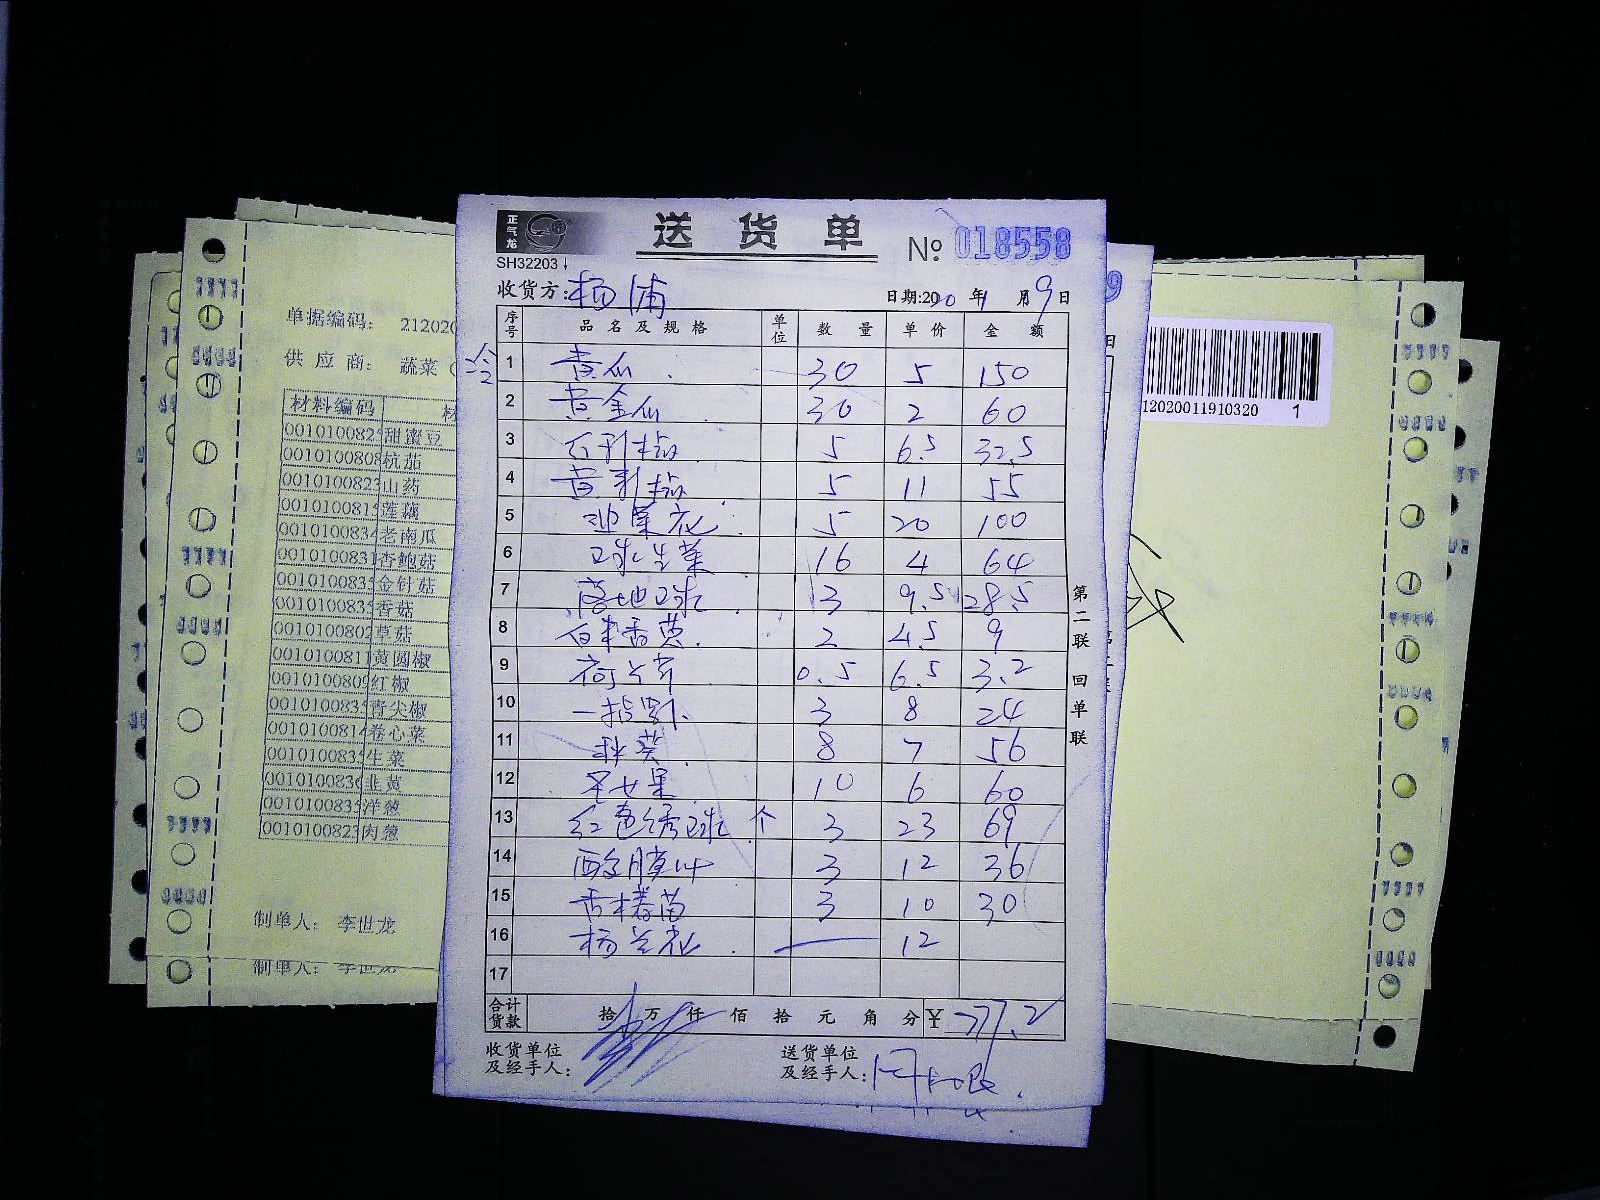 正气龙
送货单
№ 018558
SH32203
收货方: 杨浦
日期:2020年1月9日
序号 品名及规格 单位 数量 单价 金额
1 青瓜 30 5 150
2 黄金瓜 30 2 60
3 5 6.5 32.5
4 5 11 55
5 西兰花 5 20 100
6 球生菜 16 4 64
7 落地球 3 9.5 28.5
8 白米香莧 2 4.5 9
9 荷兰芹 0.5 6.5 3.2
10 3 8 24
11 秋葵 8 7 56
12 圣女果 10 6 60
13 红色绣球 个 3 23 69
14 酸膜叶 3 12 36
15 香椿苗 3 10 30
16 杨兰花 — 12
17
合计货款 拾 万 仟 佰 拾 元 角 分 ¥ 777.2
收货单位及经手人:
送货单位及经手人:
第二联 回单联
单据编码: 212020
供应商: 蔬菜
材料编码 材
001010082 甜蜜豆
0010100808 杭茄
001010082 山药
001010081 莲藕
001010083 老南瓜
001010083 杏鲍菇
001010083 金针菇
001010083 香菇
001010080 草菇
001010081 黄圆椒
001010080 红椒
001010083 青尖椒
001010081 卷心菜
001010083 生菜
001010083 韭黄
001010083 洋葱
001010082 肉葱
制单人: 李世龙
制单人: 李世龙
12020011910320 1